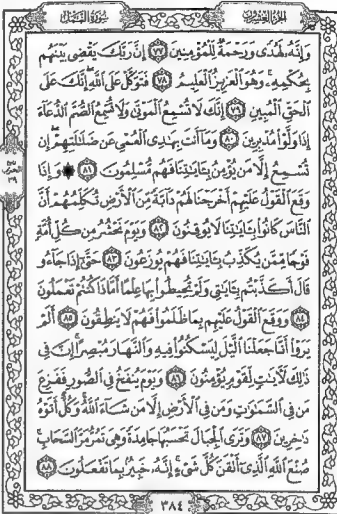 الجزء العشرون
سورة النمل
وَإِنَّهُۥ لَهُدًى وَرَحْمَةٌ لِّلْمُؤْمِنِينَ ٧٧ إِنَّ رَبَّكَ يَقْضِى بَيْنَهُم
بِحُكْمِهِۦ ۚ وَهُوَ ٱلْعَزِيزُ ٱلْعَلِيمُ ٧٨ فَتَوَكَّلْ عَلَى ٱللَّهِ ۖ إِنَّكَ عَلَى
ٱلْحَقِّ ٱلْمُبِينِ ٧٩ إِنَّكَ لَا تُسْمِعُ ٱلْمَوْتَىٰ وَلَا تُسْمِعُ ٱلصُّمَّ ٱلدُّعَآءَ
إِذَا وَلَّوْا۟ مُدْبِرِينَ ٨٠ وَمَآ أَنتَ بِهَٰدِى ٱلْعُمْىِ عَن ضَلَٰلَتِهِمْ ۖ إِن
تُسْمِعُ إِلَّا مَن يُؤْمِنُ بِـَٔايَٰتِنَا فَهُم مُّسْلِمُونَ ٨١ ۞ وَإِذَا
وَقَعَ ٱلْقَوْلُ عَلَيْهِمْ أَخْرَجْنَا لَهُمْ دَآبَّةً مِّنَ ٱلْأَرْضِ تُكَلِّمُهُمْ أَنَّ
ٱلنَّاسَ كَانُوا۟ بِـَٔايَٰتِنَا لَا يُوقِنُونَ ٨٢ وَيَوْمَ نَحْشُرُ مِن كُلِّ أُمَّةٍ
فَوْجًا مِّمَّن يُكَذِّبُ بِـَٔايَٰتِنَا فَهُمْ يُوزَعُونَ ٨٣ حَتَّىٰٓ إِذَا جَآءُو
قَالَ أَكَذَّبْتُم بِـَٔايَٰتِى وَلَمْ تُحِيطُوا۟ بِهَا عِلْمًا أَمَّاذَا كُنتُمْ تَعْمَلُونَ
٨٤ وَوَقَعَ ٱلْقَوْلُ عَلَيْهِم بِمَا ظَلَمُوا۟ فَهُمْ لَا يَنطِقُونَ ٨٥ أَلَمْ
يَرَوْا۟ أَنَّا جَعَلْنَا ٱلَّيْلَ لِيَسْكُنُوا۟ فِيهِ وَٱلنَّهَارَ مُبْصِرًا ۚ إِنَّ فِى
ذَٰلِكَ لَـَٔايَٰتٍ لِّقَوْمٍ يُؤْمِنُونَ ٨٦ وَيَوْمَ يُنفَخُ فِى ٱلصُّورِ فَفَزِعَ
مَن فِى ٱلسَّمَٰوَٰتِ وَمَن فِى ٱلْأَرْضِ إِلَّا مَن شَآءَ ٱللَّهُ ۚ وَكُلٌّ أَتَوْهُ
دَٰخِرِينَ ٨٧ وَتَرَى ٱلْجِبَالَ تَحْسَبُهَا جَامِدَةً وَهِىَ تَمُرُّ مَرَّ ٱلسَّحَابِ ۚ
صُنْعَ ٱللَّهِ ٱلَّذِىٓ أَتْقَنَ كُلَّ شَىْءٍ ۚ إِنَّهُۥ خَبِيرٌۢ بِمَا تَفْعَلُونَ ٨٨
٣٨٤